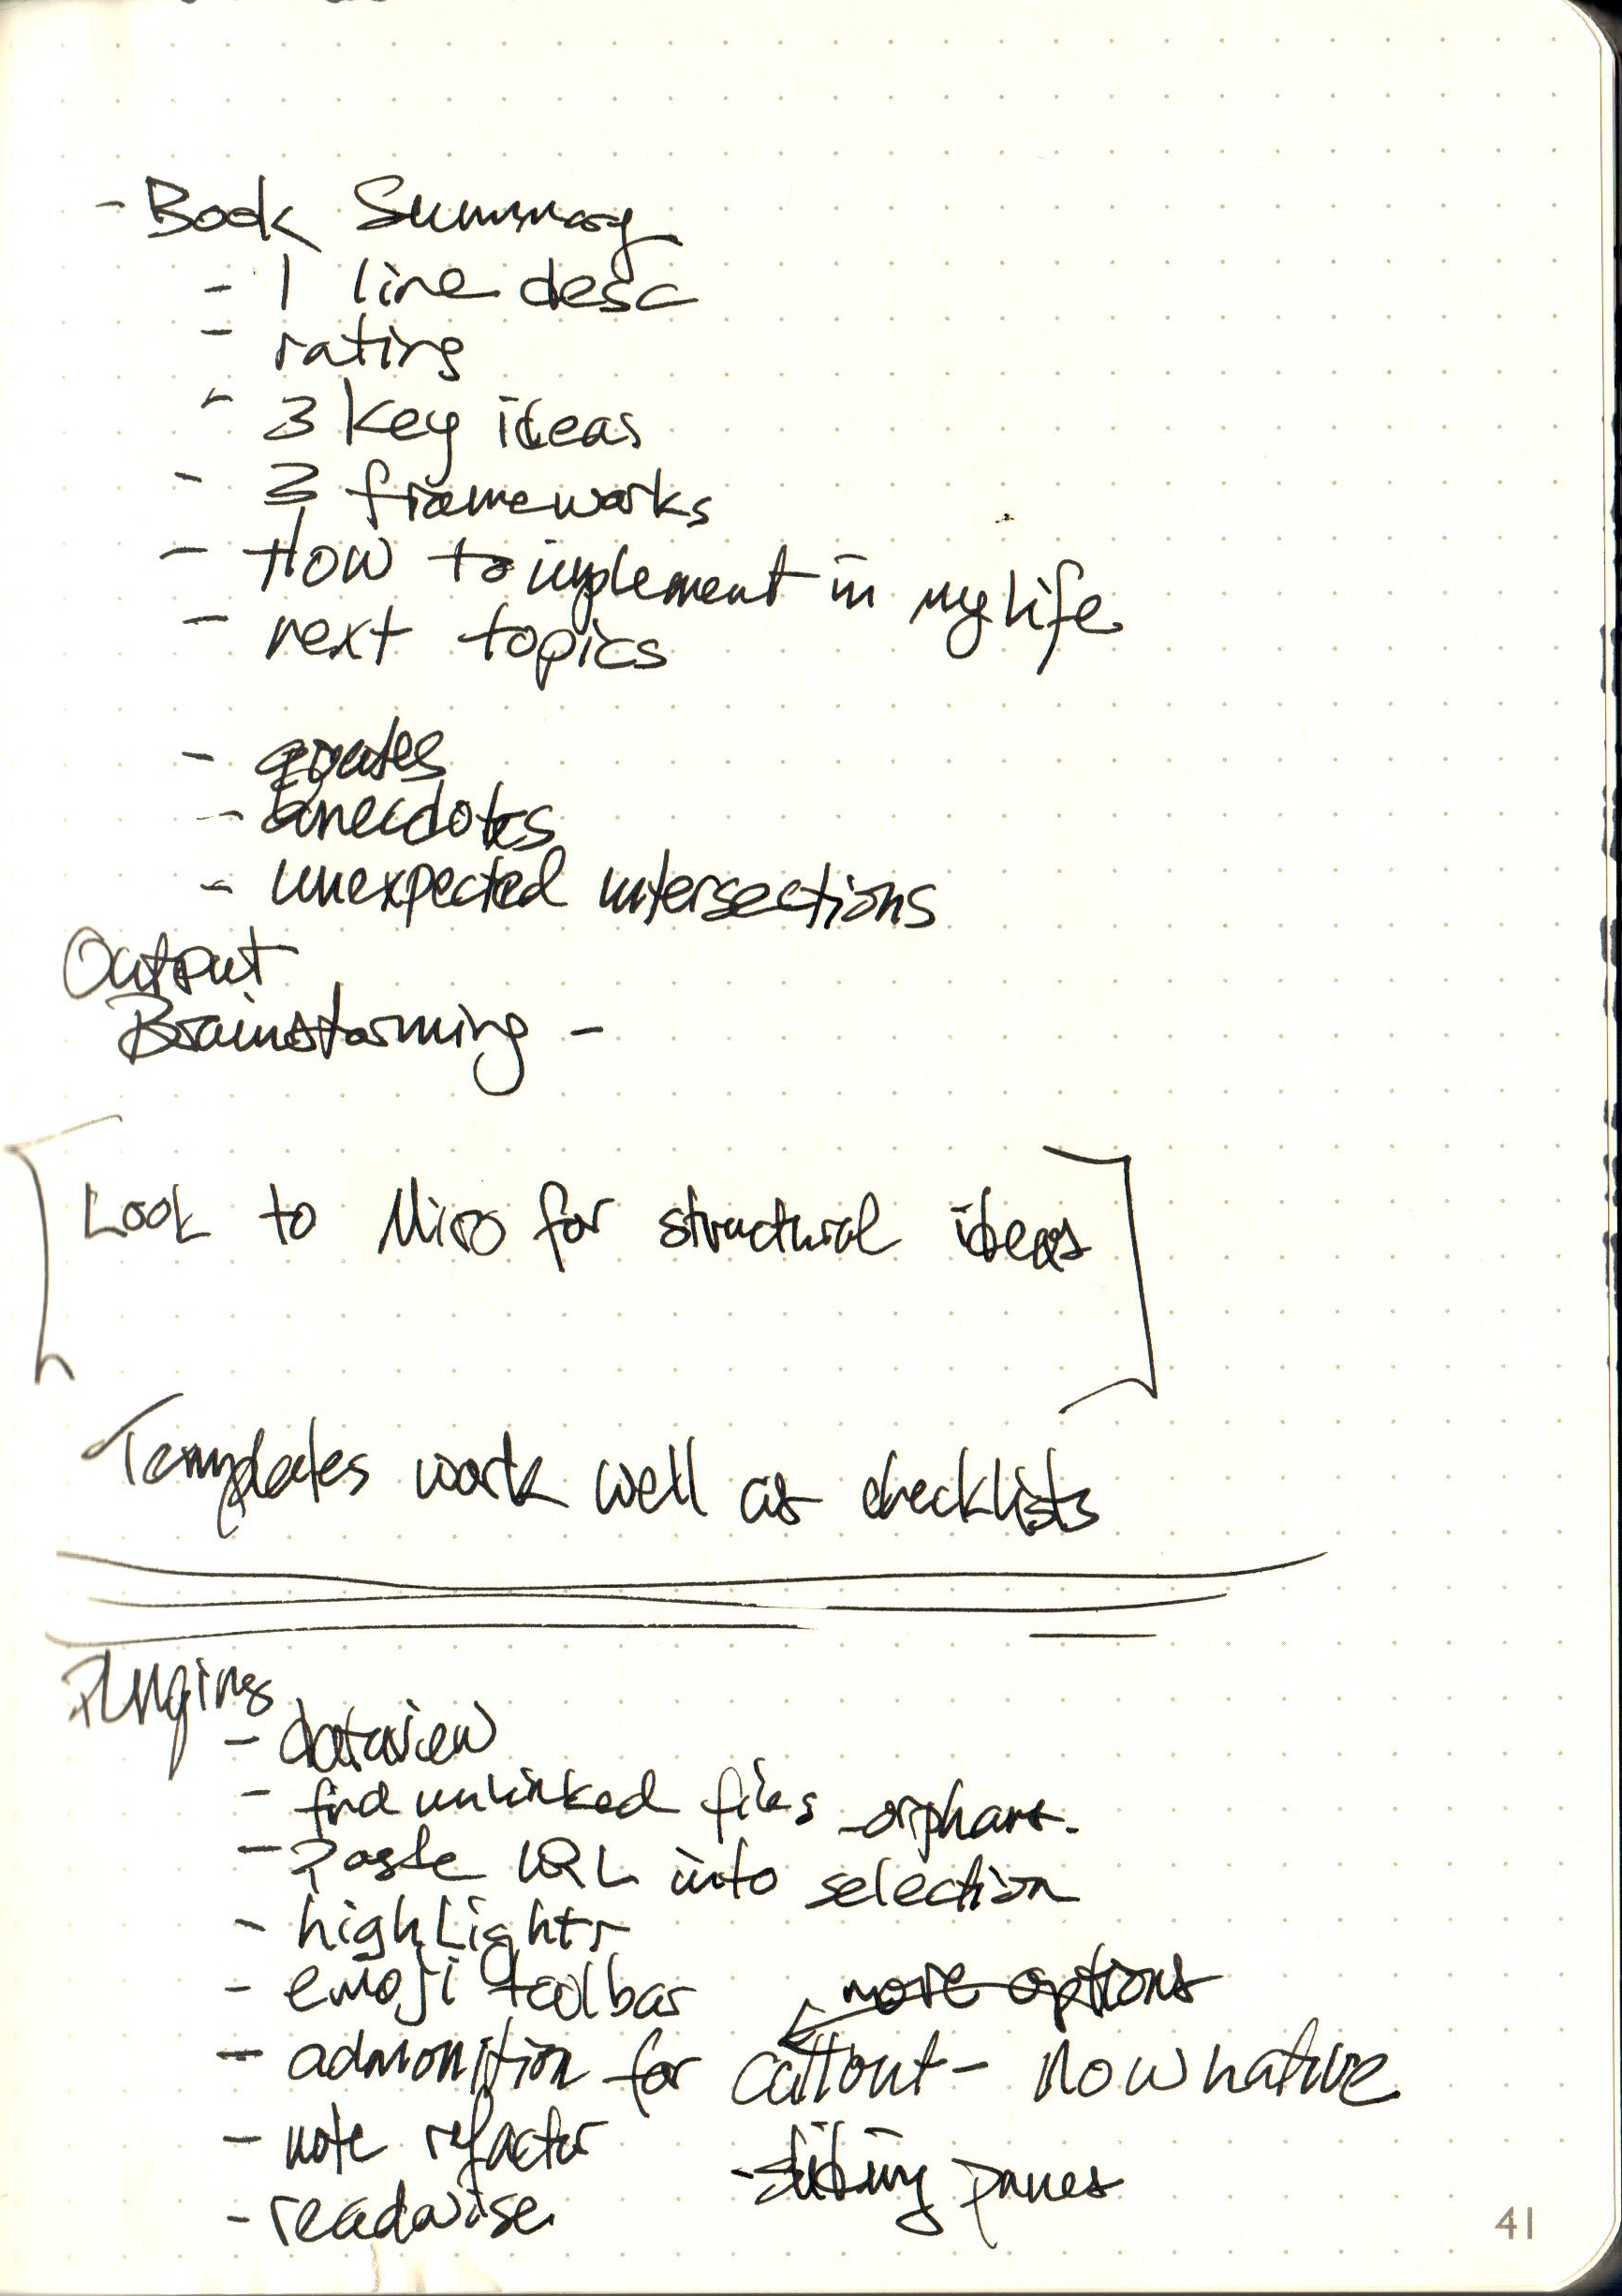 - Book Summary
- 1 line desc
- rating
- 3 key ideas
- 3 frameworks
- How to implement in my life
- next topics
- quotes
- anecdotes
- unexpected intersections
Output
Brainstorming -
[Look to Miro for structural ideas]
Templates work well as checklists
Plugins
- dataview
- find unlinked files - orphans.
- Paste URL into selection
- highlightr
- emoji toolbar
more options
- admonition for callout - now native
- note refactor
- sliding panes
- readwise
41